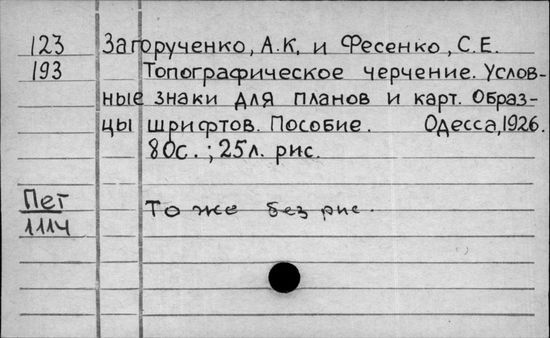 123 Загорученко, А.К. и Фесенко, С.Е.
193 Топографическое черчение. Услов-
ные знаки для планов и карт. Образ-
цы шрифтов. Пособие. Одесса, 1926.
80с.; 25л. рис.
Пег То же без рис.
1114